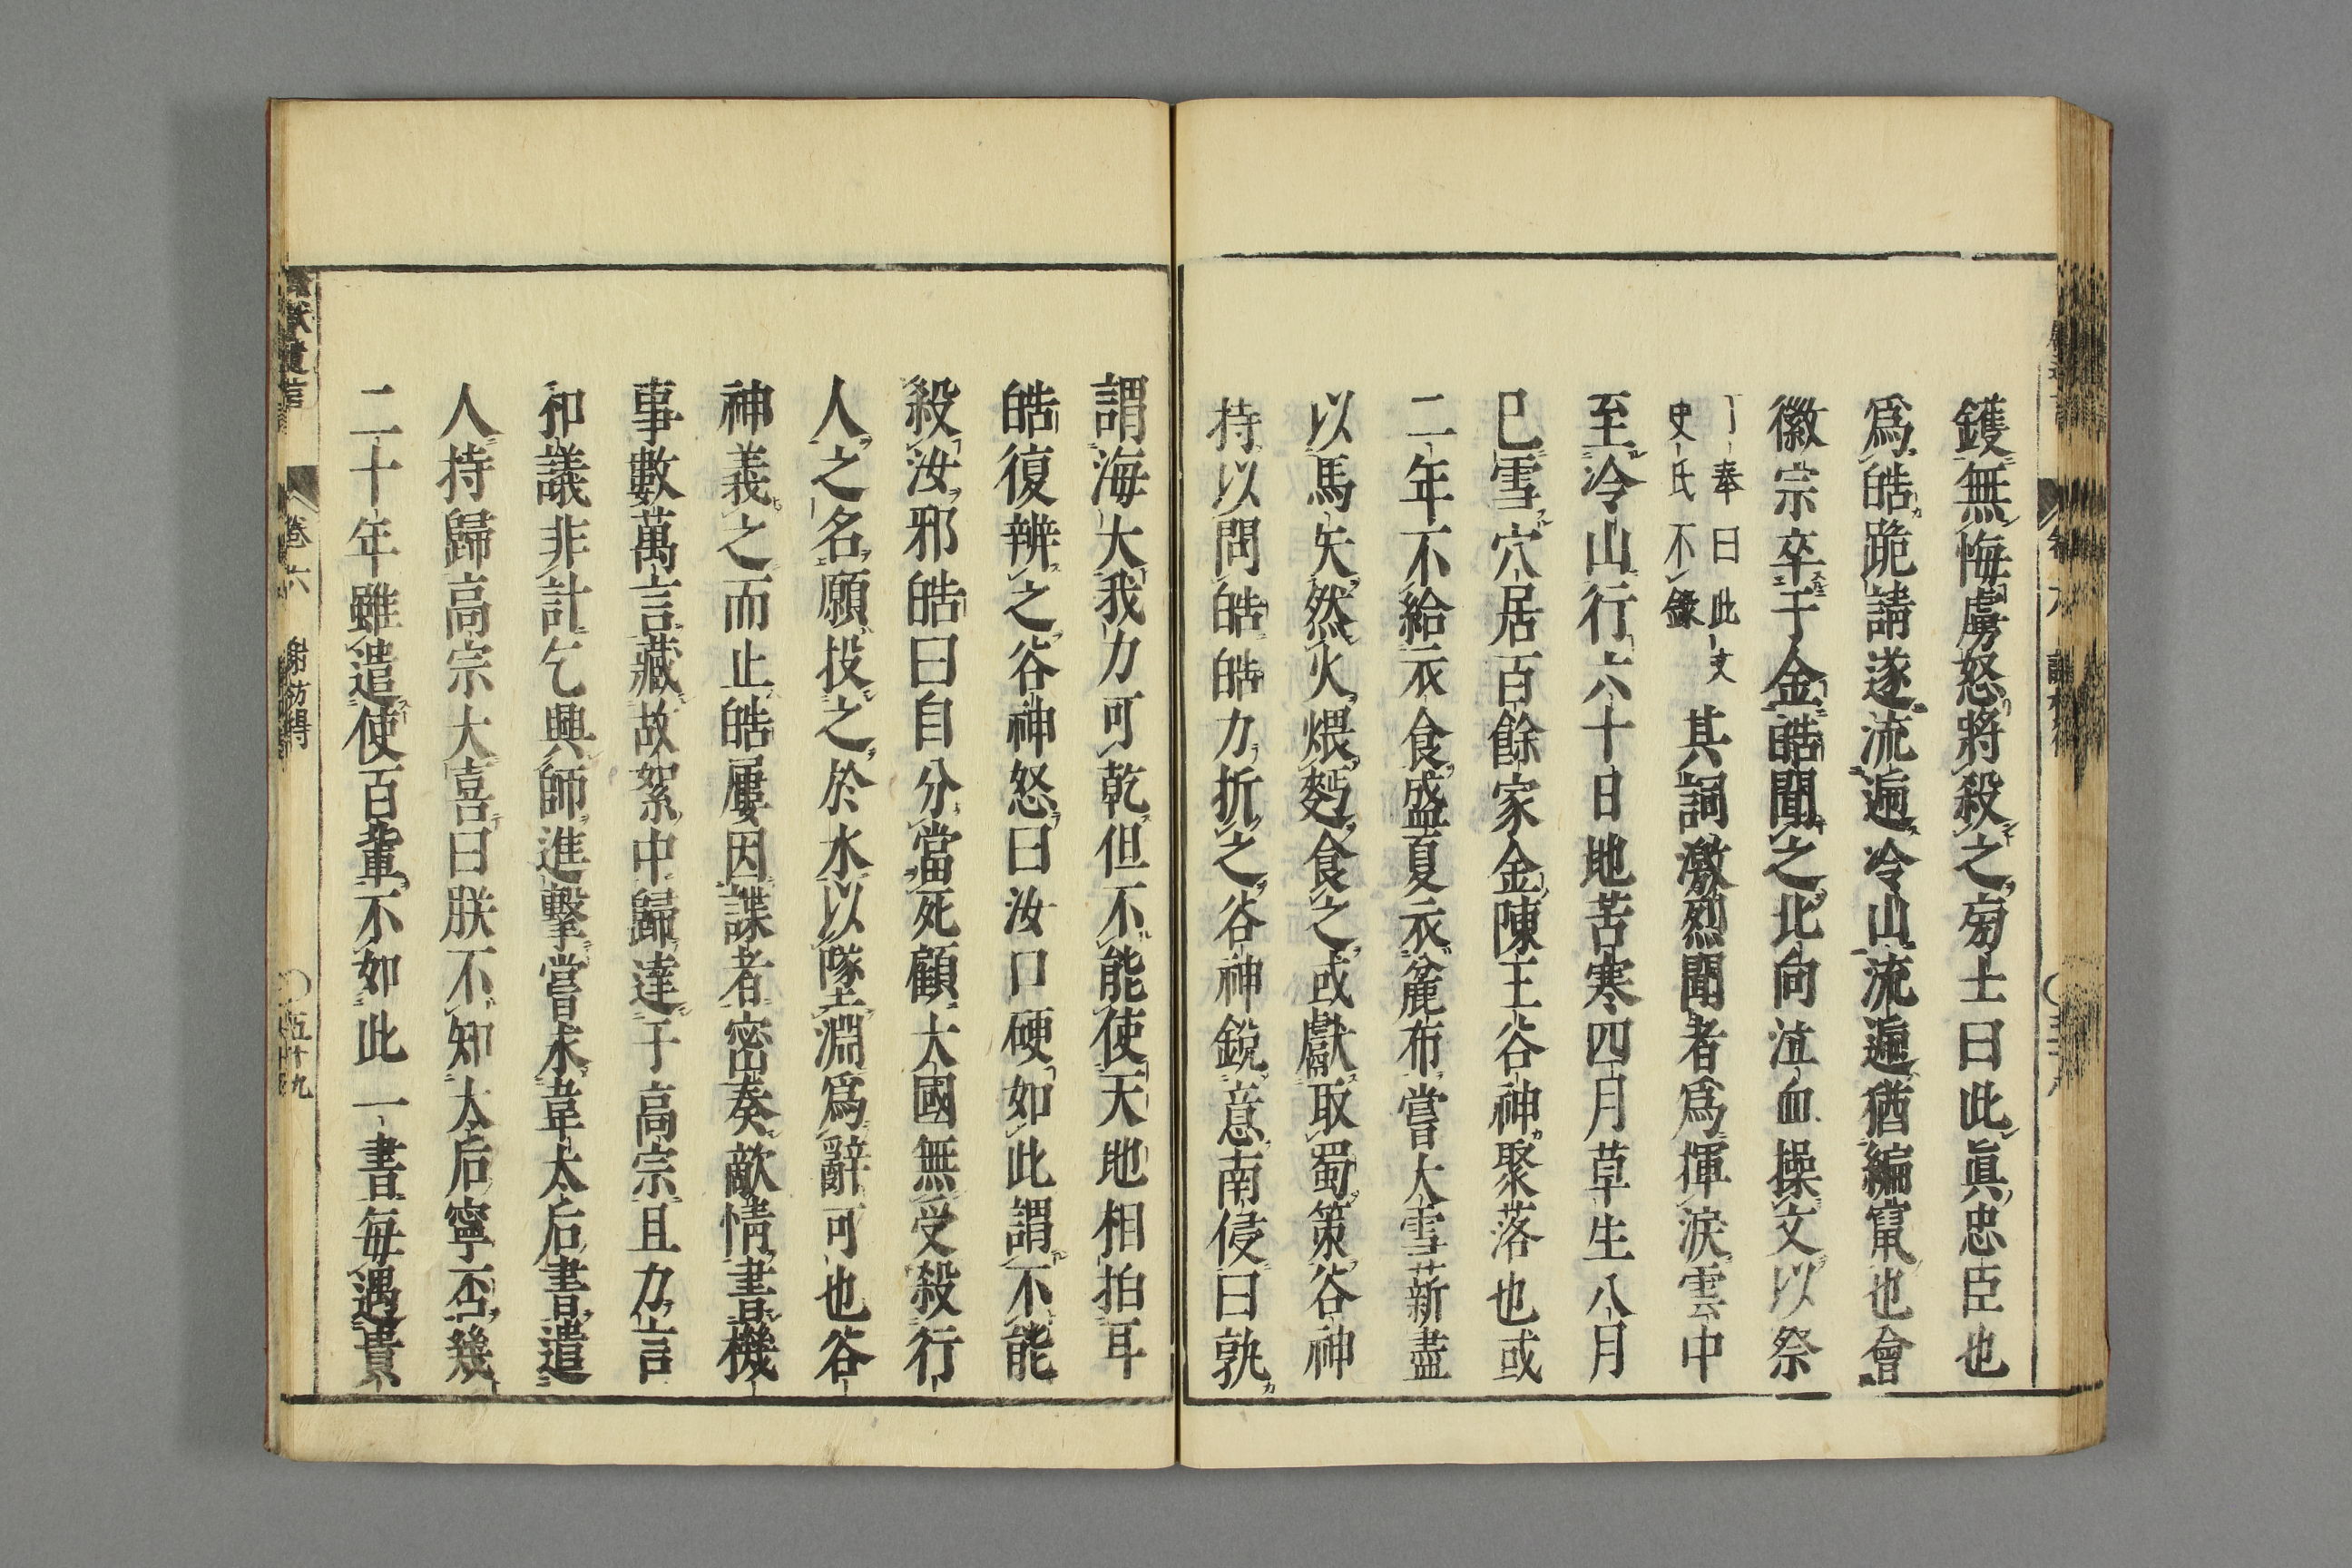 鑊無悔虜怒將殺之旁士曰此眞忠臣也
爲皓跪請遂流遞冷山流遞猶編竄也會
徽宗卒于金皓聞之北向泣血操文以祭
奉曰此文
史氏不錄
其詞激烈聞者爲揮淚雲中
至冷山行六十日地苦寒四月草生八月
已雪穴居百餘家金陳王谷神聚落也或
二年不給衣食盛夏衣麄布嘗大雪薪盡
以馬矢然火煨麪食之或獻取蜀策谷神
持以問皓皓力折之谷神銳意南侵曰孰
謂海大我力可乾但不能使天地相拍耳
皓復辨之谷神怒曰汝口硬如此謂不能
殺汝邪皓曰自分當死顧大國無受殺行
人之名願投之於水以墜淵爲辭可也谷
神義之而止皓屢因諜者密奏敵情書機
事數萬言藏故絮中歸達于高宗且力言
和議非計乞興師進擊嘗求韋太后書遣
人持歸高宗大喜曰朕不知太后寧否幾
二十年雖遣使百輩不如此一書每遇貴
卷六 謝枋得 五十九